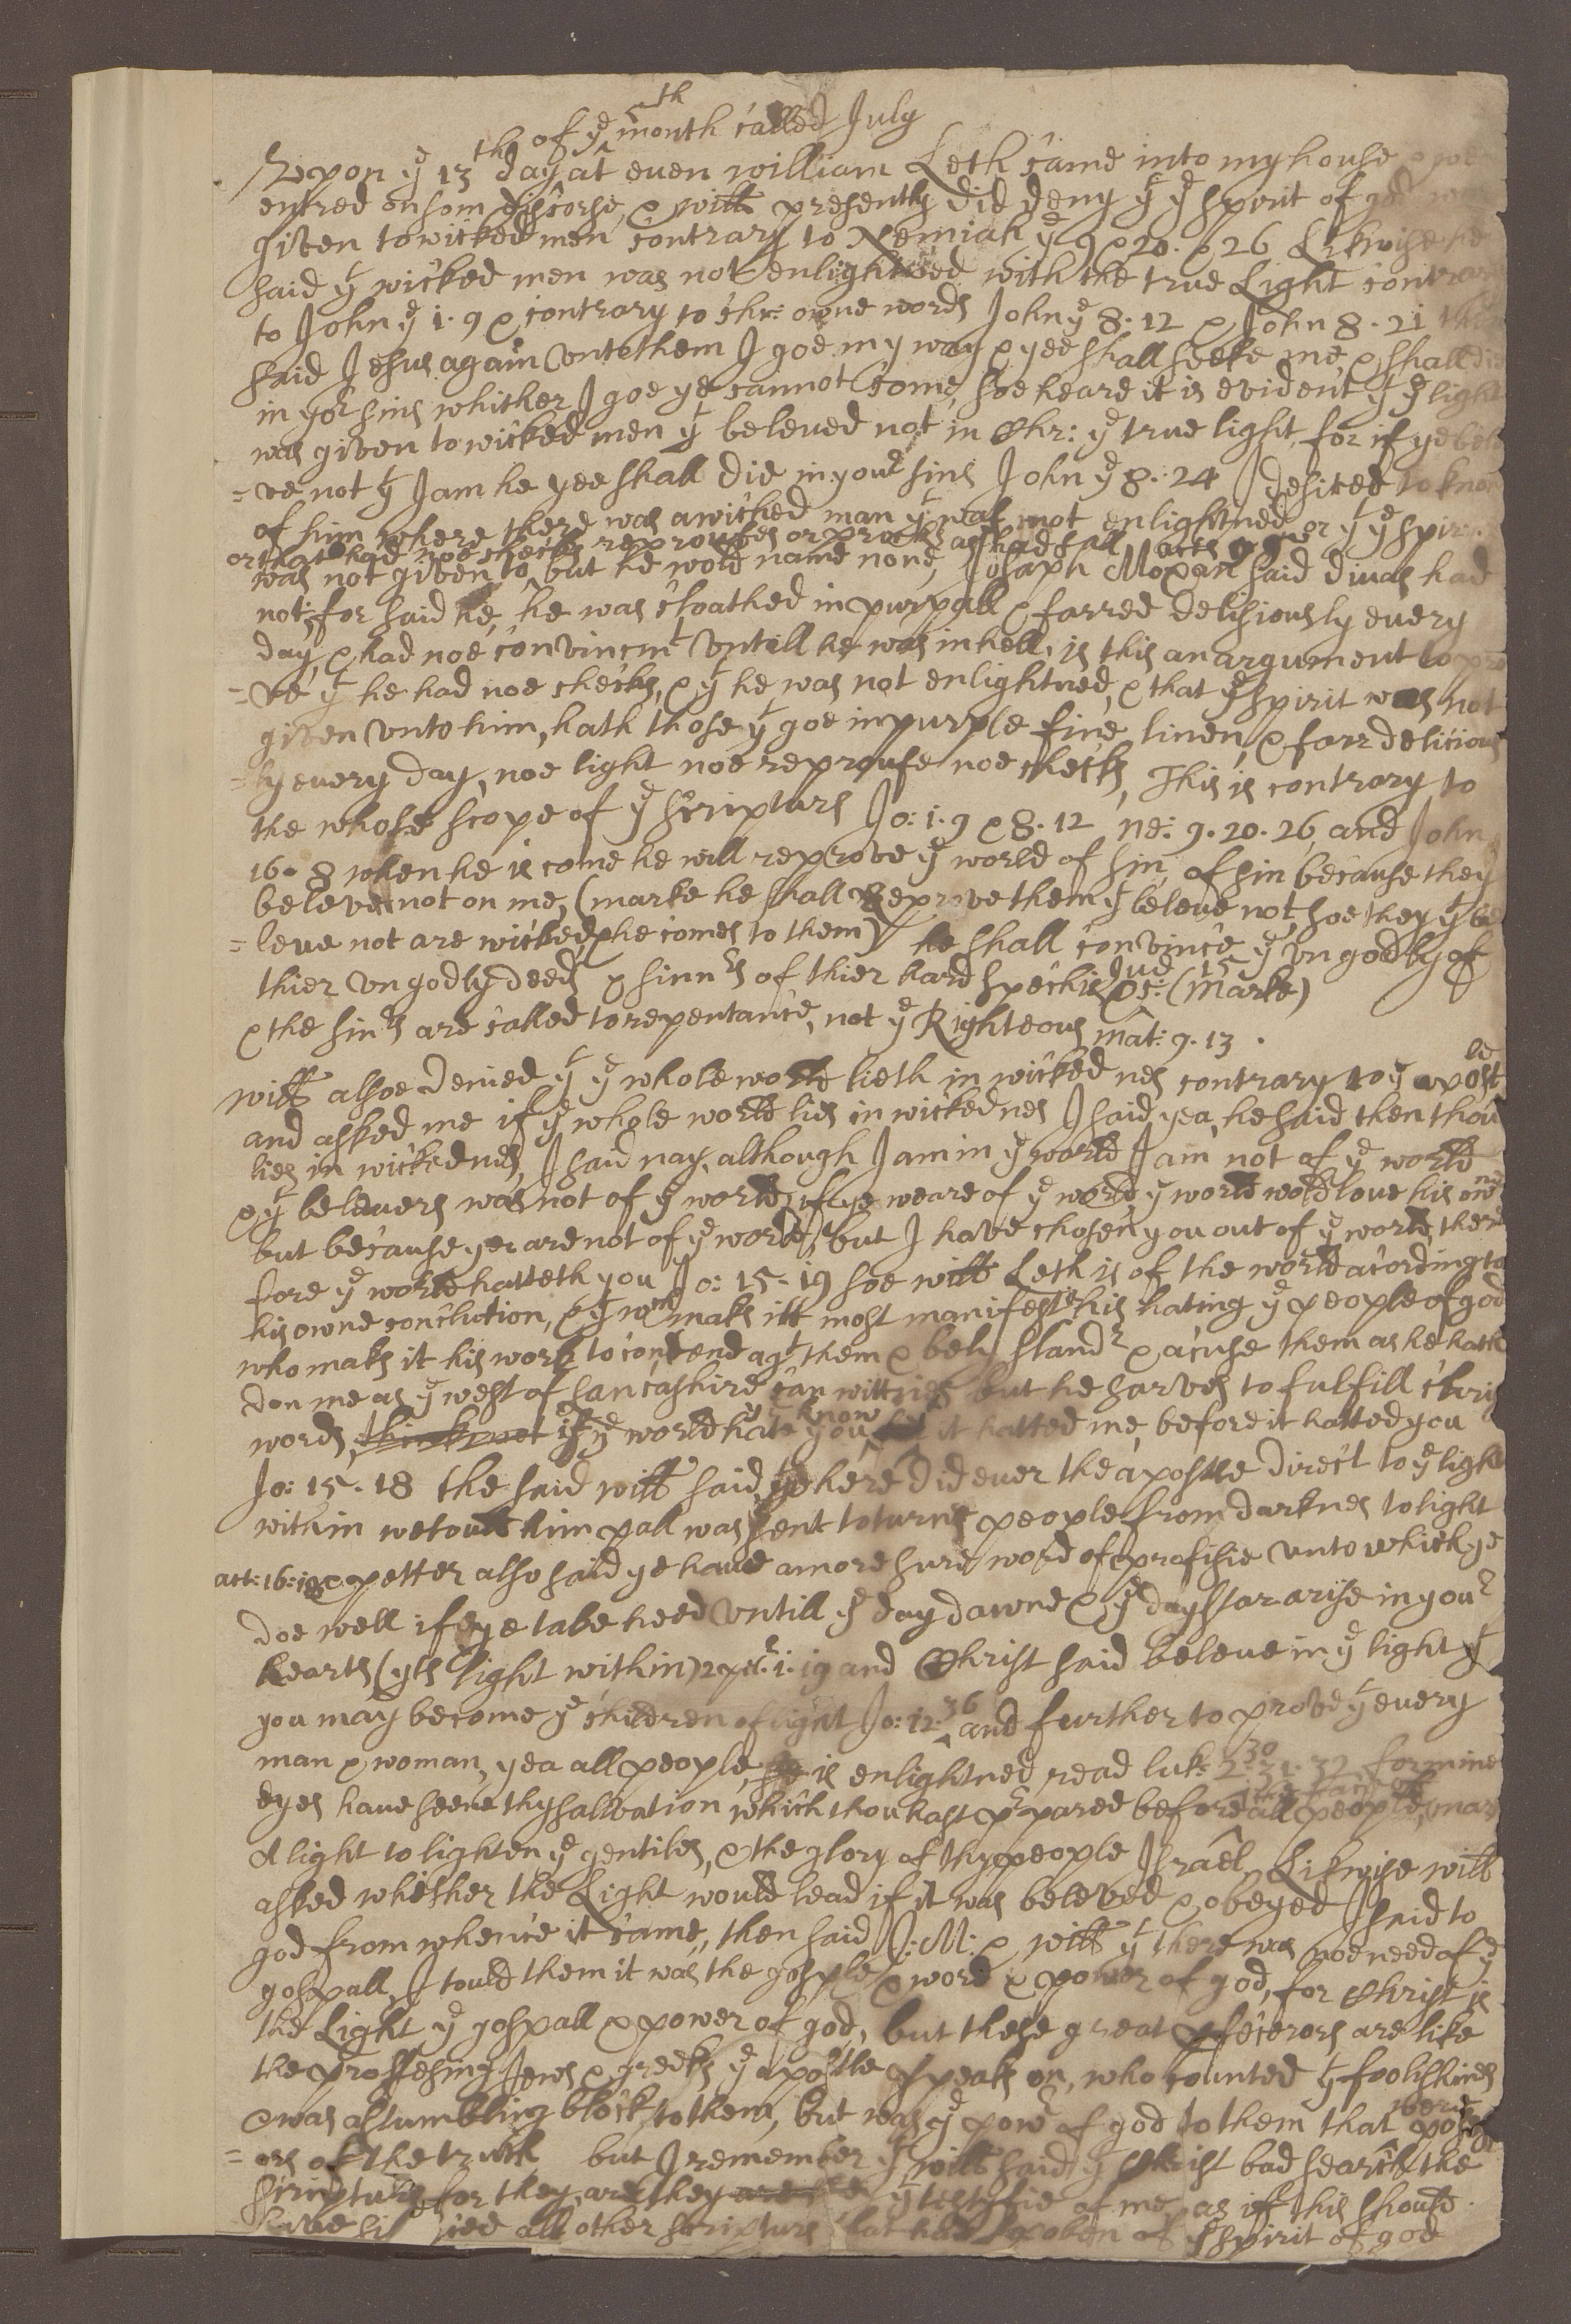 of yᵉ 5th month called July
Vpon yᵉ 13th day at euen william Leth came into my house & we
entred on som discorse, & will presently did deny yᵗ yᵉ spirit of god was
given to wicked men contrary to Nemiah yᵉ 9 & 20. & 26 Likwise he
said yᵗ wicked men was not enlightned with the true Light contrary
to John yᵉ 1. 9 & contrary to chr: owne words John yᵉ 8. 12 & John 8. 21 then
said Jesus again vnto them I goe my way & yee shall seeke me & shall die
in yoʳ sins whither I goe ye cannot come, soe heare it is evident yᵗ yᵉ light
was given to wicked men yᵗ beleved not in Chr: yᵉ true light, for if ye bele
=ve not yᵗ I am he yee shall die in youʳ sins John yᵉ 8: 24 I desired to know
of him where there was a wicked man yᵗ was not enlightned or yᵗ yᵉ spirit
or that had noe checks reproufes or pricks as had sall acts 9
was not given to, but he wold name none, Josaph Moxan said diuas had
not; for said he, he was cloathed in purpall & farred delisiously every
day, & had noe convincmᵗ vntill he was in hell, is this an argument to pro
=ve yᵗ he had noe checks, & yᵗ he was not enlightned, & that yᵉ spirit was not
given vnto him, hath those yᵗ goe in purple fine linen, & farr delicious
=ly every day, noe light noe reproufe noe checks, This is contrary to
the whose scope of yᵉ scripturs Jo: 1. 9 & 8. 12 ne: 9. 20. 26, and John
16. 8 when he is come he will reprove yᵉ world of sin, of sin because they
beleve not on me, (marke he shall Reprove them yᵗ beleve not, soe they yᵗ be
=leue not are wicked, & he comes to them) he shall convince yᵉ vngodly of
thier vngodly deeds & sinnʳˢ of thier hard spechis Jud 15 &c: (Marke)
& the sinʳˢ are called to repentance, not yᵉ Righteous mat: 9. 13 .
will alsoe denied yᵗ yᵉ whole world lieth in wickednes contrary to yᵉ apostle
and asked me if yᵉ whole world lies in wickednes I said yea, he said then thou
lies in wickednes, I said nay, although I am in yᵉ world I am not of yᵉ world
& yᵗ beleuers was not of yᵉ world, if ye weare of yᵉ world, yᵉ world wold love his owne
but because yee are not of yᵉ world, but I have chosen you out of yᵉ world, there
fore yᵉ world hatteth you Jo: 15. 19 soe will Leth is of the world acording to
his owne conclution, & yᵗ wᶜʰ maks itt most manifest is his hating yᵉ people of god
who maks it his work to contend agᵗ them & bely slandʳ & acuse them as he hath
don me as yᵉ west of Lancashire can wittnes but he sarves to fulfill chris
words, think not if yᵉ world hate you know it hatted me, before it hatted you
Jo: 15. 18 the said will said, where did euer the apostle direct to yᵉ light
within we tould him pall was sent to turne people from darknes to light
act: 16: 18 & petter also said ye haue a more sure word of profisie vnto which ye
doe well if ye take heed vntill yᵉ day dawne & yᵉ day star arise in youʳ
hearts (yᵗˢ light within) 2 petʳ: 1. 19 and Christ said beleue in yᵉ light yᵗ
you may become yᵉ children of light Jo: 12: 36 and further to prove yᵗ euery
man & woman, yea all people, is enlightned read luk: 2: 30 31. 32 for mine
eyes haue seene thy saluation which thou hast pʳpared before the face of all people, mark
A light to lighten yᵉ gentiles, & the glory of thy people Israel, Likwise will
asked whether the Light would lead if it was beleved & obeyed I said to
god from whence it came, then said J: M: & will yᵗ there was noe need of yᵉ
gospall, I tould them it was the gosple & word & power of god, for Christ is
the Light yᵉ gospall & power of god, but these great pfecerors are like
the proffesing Jews & greeks yᵉ apostle speaks on, who counted yᵗ foolishnes
& was a stumbling block to them, but was yᵉ powʳ of god to them that were poses
=ors of the truth but I remember yᵗ will said yᵗ Christ bad search the
scripturs for they are they yᵗ testyfie of me, as if this should
have all other scripturs that had spoken of yᵉ spirit of god